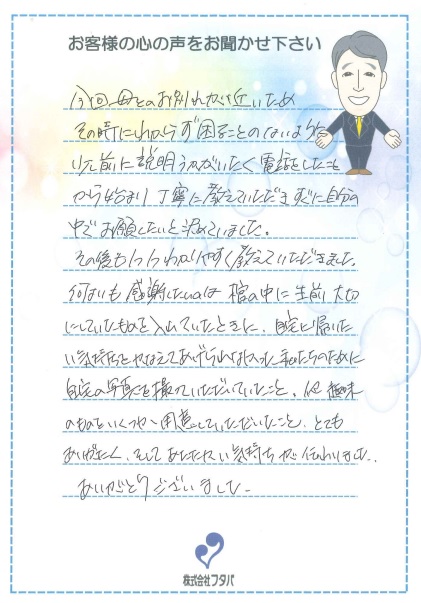 お客様の心の声をお聞かせ下さい
今回母とのお別れが近いため
その時にわからず困ることのないよう
以前に説明うかがいたく電話をしたこと
から始まり丁寧に教えていただきすぐに自分の
中でお願いしたいと決めていました。
その後もわかりやすく教えていただきました。
何よりも感謝したいのは棺の中に生前大切
にしていたものを入れていたときに、自宅に帰いた
い気持ちをかなえてあげられなかった私たちのために
自宅の写真を撮っていただいていたこと、趣味
のものをいくつか用意していただいたこと、とても
ありがたく、そしてあたたかい気持ちが伝わりました。
ありがとうございました。
株式会社フタバ